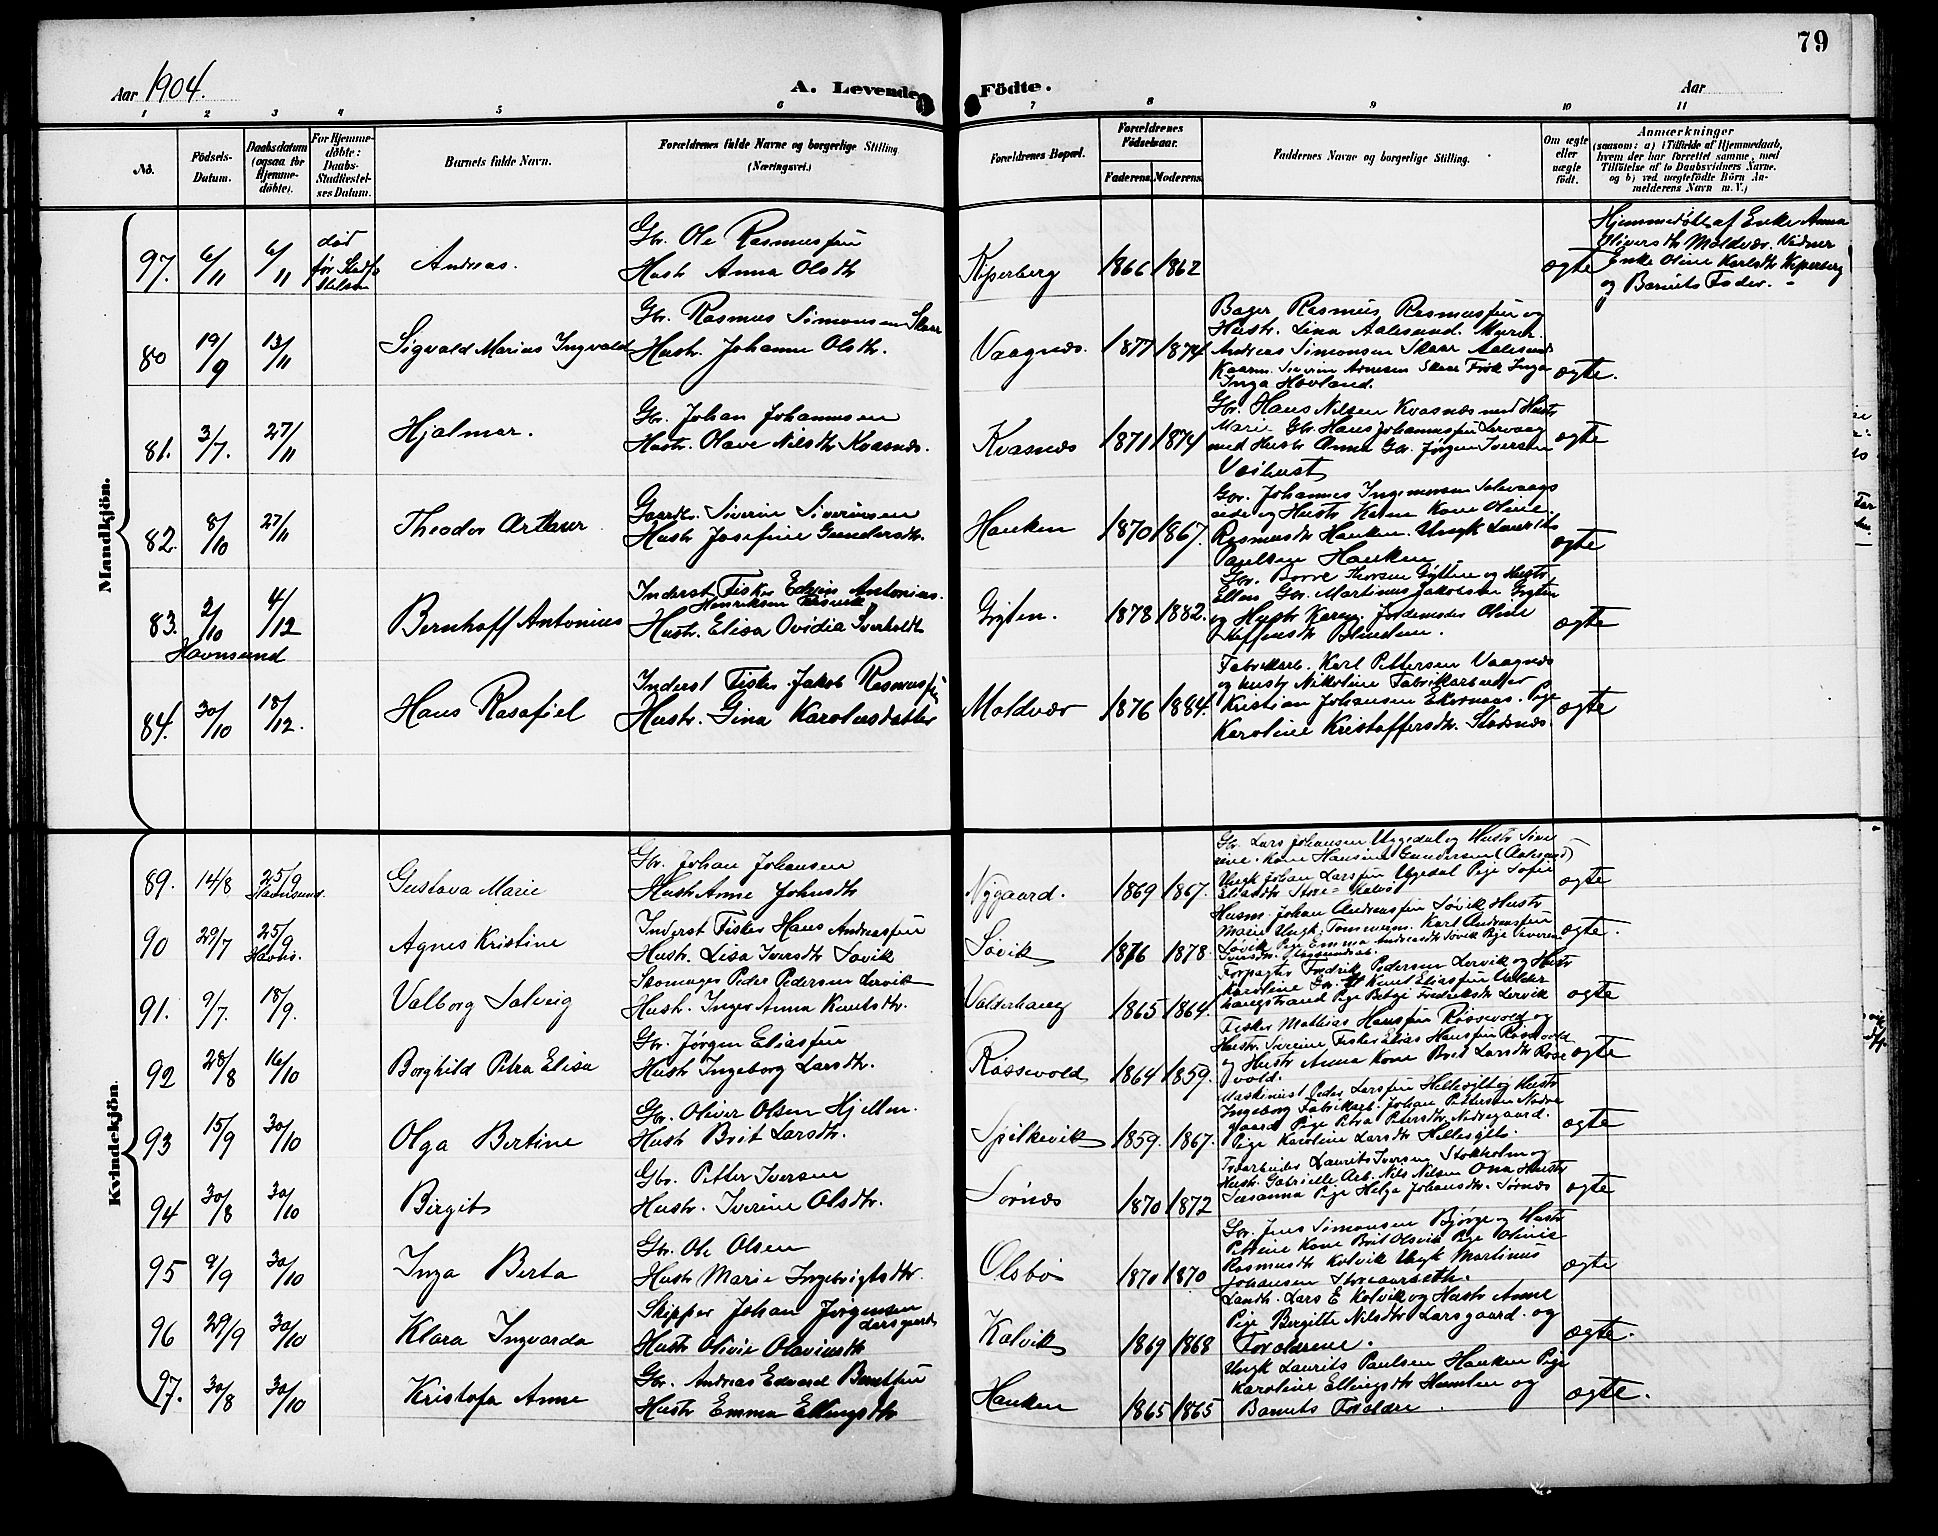 79
Aar 1904.
A. Levende Födte.
Aar
1 2 3 4 5 6 7 8 9 10 11
No.
Födsels-
Datum.
Daabsdatum
(ogsaa for
Hjemme-
döbte).
For Hjemme-
döbte:
Daabs-
Stadfæstel-
ses Datum.
Barnets fulde Navn.
Forældrenes fulde Navne og borgerlige Stilling
(Næringsvei.)
Forældrenes Bopæl.
Forældrenes
Födselsaar.
Faderens.
Moderens.
Faddernes Navne og borgerlige Stilling.
Om ægte
eller
uægte
født.
Anmærkninger
(saasom: a) i Tilfælde af Hjemmedaab,
hvem der har forrettet samme, med
Tilföielse af to Daabsvidners Navne.
og b) ved uægtefödte Börn An-
melderens Navn m. V.)
Mandkjön.
97. 6/11 6/11 død
før Stadf
Andreas.
Gbr. Ole Rasmussen
Hustr Anna Olsdtr
Kiperberg 1866 1862
ægte
Hjemmedøbt af Enke Anna
Oliversdtr Moldvær. Vidner
Enke Oline Karlsdtr Kiperberg
og Barnets Fader. -
80 19/9 13/11
Sigvald Marius Ingvald
Gbr. Rasmus Simonsen Skaar
Hustr. Johanne Olsdtr.
Vaagnes. 1877 1874
Bager Rasmus Rasmussen og
Hustr. Lina Aalesund. Murer
Andreas Simonsen Skaar Aalesund
Severin Arnesen Skaar Frøk Inga
Inga Hovland.
ægte.
81. 3/7. 27/11
Hjalmar.
Gbr. Johan Johannesen
Hustr. Olave Nilsdtr Kvasnes.
Kvasnes 1871 1874
Gbr. Hans Nilsen Kvasnes med Hustr
Marie Gbr. Hans Johannessen Lervaag
med Hustr Anna Gbr. Jørgen Iversen
ægte
82. 8/10 27/11
Theodor Arthur
Gaardb. Siverin Siverinsen
Hustr Josefine Gundersdtr.
Hanken 1870 1867.
Gbr. Johannes Ingemorsen
og Hustr Karen Kone Oline
Rasmusdtr Hanken. Ungk Laurits
Paulsen Hanken
ægte
83. 2/10 4/12
Havnsund
Bernhoff Antonius
Inderst Fisker Edvin Antonius.
Henriksen
Hustr. Elisa Ovidia
Gryten. 1878 1882.
Gbr. Borre Thorsen Gryten og Hustr
Ellen Gbr. Martinus Jakobsen Gryten
og Hustr Karen Jordemoder Oline
ægte
84. 30/10 18/12.
Hans Rasafiel
Inderst Fisker Jakob Rasmussen
Hustr. Gina Karolusdatter
Moldvær 1876 1884.
Fabrikarb. Karl Pettersen Vaagnes
og hustr Nikoline Fabrikarbeider
Kristian Johansen Ekornæs. Pige
Karoline Kristoffersdtr. Skodsnes.
ægte
Kvindekjön.
89. 14/8 25/9
Havnsund.
Gustava Marie
Gbr. Johan Johansen
Hustr Anne Johnsdtr
Nygaard. 1869 1867.
Gbr Lars Johansen Uggedal og Hustr
Kone Hansine Gundersen (Aalesund)
Ungk Johan Larsen Uggedal Pige Sofie
Eliasdtr Store Kalvø
ægte
90 29/7 25/9
Havns.
Agnes Kristine
Inderst Fisker Hans Andreassen
Hustr. Lisa Iversdtr Søvik
Søvik 1876 1878
Husm. Johan Andreassen Søvik Hustr
Marie Ungk. Karl Andreassen
Søvik Pige Emma Andreasdtr Søvik Pige
ægte.
91. 9/7. 18/9.
Valborg Solveig
Skomager Peder Pedersen Lervik
Hustr. Inger Anna Knutsdtr.
Valderhaug 1865 1864.
Forpagter Fredrik Pedersen Lervik og Hustr
Karoline Gbr. Knut Eliassen Valder
haugstrand Pige Fredriksdtr Lervik
ægte
92 28/8 16/10
Borghild Petra Elisa
Gbr. Jørgen Eliassen
Hustr Ingeborg Larsdtr.
Røssevold 1864 1859.
Fisker Mathias Hanssen Røssevold og
Hustr. Severine Fisker Elias Hanssen Røssevold
og Hustr Anna Kone Brit Larsdtr Røsse
vold.
ægte
93 15/9 30/10
Olga Bertine
Gbr. Oliver Olsen Hjellen.
Hustr Brit Larsdtr.
Spilkevik 1859. 1867.
Maskinist Peder Larssen Hellesylt og Hustr
Ingeborg Fabrikarb. Johan Pettersen Nedre
gaard Pige Petra Petersdtr Nedregaard.
Pige Karoline Larsdtr Hellesylt.
ægte
94 30/8 30/10
Birgit
Gbr. Petter Iversen
Hustr. Iverine Olsdtr.
Sørnes 1870 1872
Laurits Iversen Stokholm og
Hustr. Gabrielle Arb. Nils Nilsen Ona Hustr
Susanna Pige Helga Johansdtr. Sørnes
ægte
95 9/9 30/10
Inga Berta
Gbr. Ole Olsen
Hustr Marie Ingebrigtsdtr.
Olsbø 1870 1870
Gbr. Jens Simonsen Bjørge og Hustr
Petrine Kone Brit Olsvik Pige Oline
Rasmusdtr Kolvik Ungk Martinus
Johansen Storeaarseth.
ægte
96 29/9 30/10
Klara Ingvarda
Skipper Johan Jørgensen
Larsgaard
Hustr Olivie Olaviusdtr
Kolvik 1869 1868
Landh. Lars E Kolvik og Hustr Anne
Pige Bergitte Nilsdtr Larsgaard. og
Forældrene.
ægte.
97. 30/8 30/10
Kristofa Anne
Gbr. Andreas Edvard Berntsen
Hustr Emma Ellingsdtr
Hanken 1865 1865
Ungk Laurits Paulsen Hanken Pige
Karoline Ellingsdtr Humlen og
Barnets Forældre.
ægte.